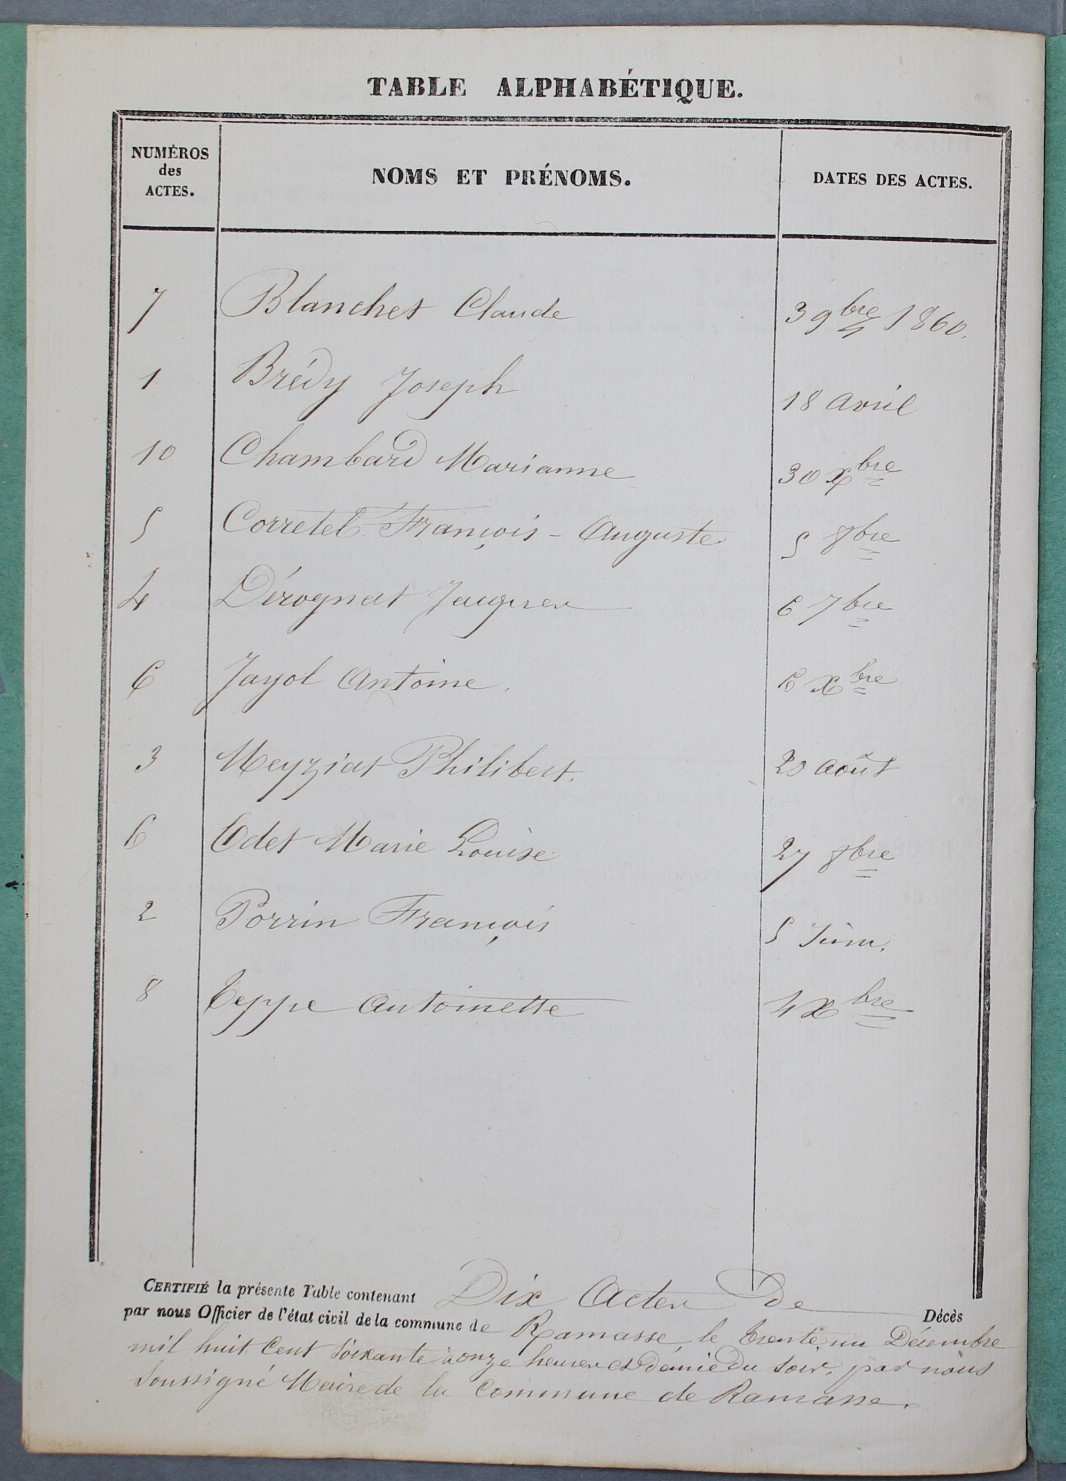 TABLE ALPHABÉTIQUE.
NUMÉROS
des
ACTES.
NOMS ET PRÉNOMS.
DATES DES ACTES.
7 Blanchet Claude 3 9bre 1860.
1 Brédy Joseph 18 avril
10 Chambard Marianne 30 Xbre
5 Corretel François - Auguste 5 8bre
4 Dérognat Jacques 6 7bre
6 Jayol Antoine. 6 Xbre
3 Meyziat Philibert. 20 août
6 Odet Marie Louise 27 8bre
2 Porrin François 5 Juin.
8 Teppe Antoinette 4 Xbre
CERTIFIÉ la présente Table contenant Dix Actes De Décès
par nous Officier de l'état civil de la commune de Ramasse le trente un Décembre
mil huit Cent soixante à onze heures et démie du soir, par nous
soussigné Maire de la Commune de Ramasse.